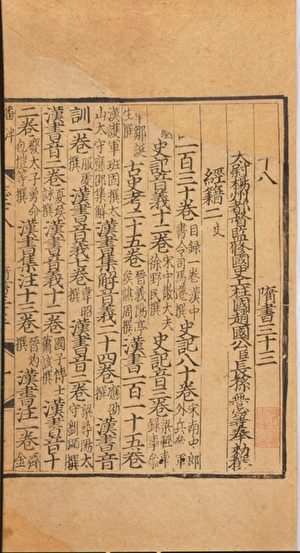 十八 隋書三十三
太尉揚州都督監修國史上柱國趙國公臣長孫無忌等奉 勑撰
經籍二 史
一百三十卷目録一卷漢中書令司馬遷撰 史記八十卷宋南中郎外兵參軍
史記音義十二卷宋中散大夫徐野民撰 史記音三卷梁輕車録事參
軍鄒誕生撰 古史考二十五卷晉義陽亭侯譙周撰 漢書一百一十五卷
漢護軍班固撰太山太守應劭集解 漢書集解音義二十四卷應劭撰 漢書音
訓一卷服虔撰 漢書音義七卷韋昭撰 漢書音二卷梁尋陽太守劉顯撰
漢書音二卷夏侯詠撰 漢書音義十二卷國子博士蕭該撰 漢書音十
二卷廢太子勇命包愷等撰 漢書集注十三卷晉灼撰 漢書注一卷齊金